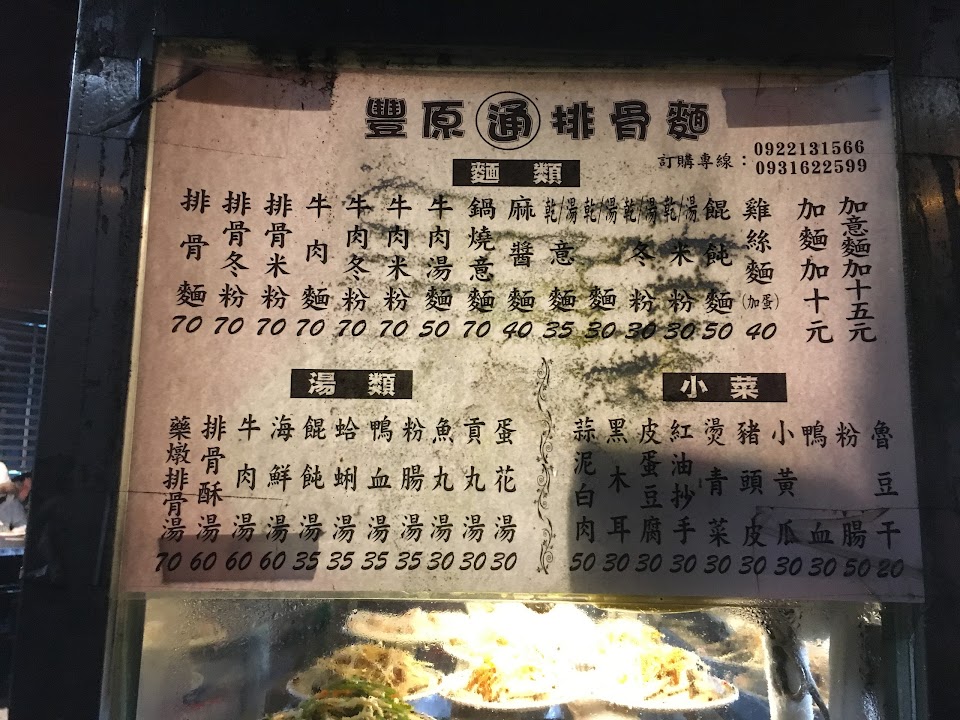 豐原通排骨麵
訂購專線：0922131566
0931622599
麵類
排骨麵 70
排骨冬粉 70
排骨米粉 70
牛肉麵 70
牛肉冬粉 70
牛肉米粉 70
牛肉湯麵 50
鍋燒意麵 70
麻醬麵 40
乾/湯意麵 35
乾/湯麵 30
乾/湯冬粉 30
乾/湯米粉 30
餛飩麵 50
雞絲麵(加蛋) 40
加麵加十元
加意麵加十五元
湯類
藥燉排骨湯 70
排骨酥湯 60
牛肉湯 60
海鮮湯 60
餛飩湯 35
蛤蜊湯 35
鴨血湯 35
粉腸湯 35
魚丸湯 30
貢丸湯 30
蛋花湯 30
小菜
蒜泥白肉 50
黑木耳 30
皮蛋豆腐 30
紅油抄手 30
燙青菜 30
豬頭皮 30
小黃瓜 30
鴨血 30
粉腸 50
魯豆干 20